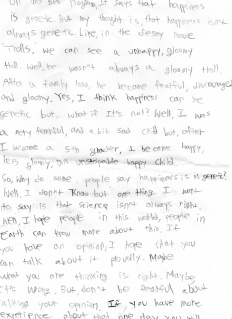 it says that happiness
is genetic. But my thought is, that happiness isn't
always genetic. Like, in the disney movie
Trolls, we can see a unhappy, gloomy
troll. Well, he wasn't always a gloomy troll
After a family loss, he became fearful, discouraged
and gloomy. Yes, I think happiness can be
genetic but, what if it's not? Well, I was
a very fearful, and a bit sad child but, after
I became a 5th grader, I became happy,
less gloomy, an unstopable happy child.
So, why do some people say happiness is genetic?
Well, I don't know but one thing I want
to say is that science isn't always right.
Well, I hope people in this world, people in
earth can know more about this. If
you have an opinion, I hope that you
can talk about it proudly. Maybe
what you are thinking is right. Maybe
it's wrong. But don't be fearful about
talking your opinion. If you have more
experience about that one day you will